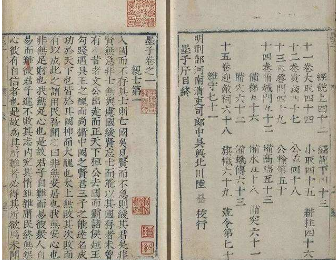 經說上四十二　經說下四十三
十一卷大取四十四　小取四十五　耕柱四十六
十二卷貴義四十七　公孟四十八
十三卷魯問四十九　公輸第五十
十四卷備城門五十二　備高臨五十三
備梯五十六　備水五十八　備突六十一
備穴六十二　備蛾傅六十三
十五卷迎敵祠六十八　旗幟六十九　號令七十
雜守七十一
明刑部河南清吏司郎中吳興北川陸　校行
墨子序目終
墨子卷之一
親士第一
入國而不存其士則亡國矣見賢而不急則緩其君矣非
賢無急非士無與慮國緩賢忘士而能以其國存者未曾
有也昔者文公出走而正天下桓公去國而霸諸侯越王
勾踐遇吳王之醜而尚攝中國之賢君三子之能達名成
功於天下也皆於其國抑而大醜也太上無敗其次敗而
有以成此之謂用民吾聞之曰非無安居也我無安心也
非無足財也我無足心也是故君子自難而易彼衆人自
易而難彼君子進不敗其志內究其情雖雜庸民終無怨
心彼有自信者也是故為其所難者必得其所欲焉未聞